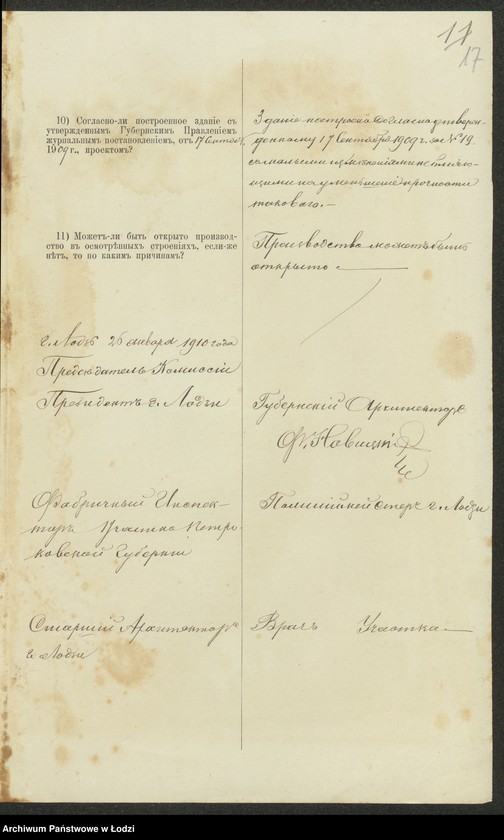 11
17
10) Согласно-ли построенное зданіе съ
утвержденнымъ Губернскимъ Правленіемъ
журнальнымъ постановленіемъ, отъ 17 Сентября
1909 г., проектомъ?
Зданіе построено согласно утвер-
жденному 17 Сентября 1909 г. за № 19
съ малыми
на уменьшеніе прочности
таковаго. —
11) Можетъ-ли быть открыто производ-
ство въ осмотрѣнныхъ строеніяхъ, если-же
нѣтъ, то по какимъ причинамъ?
Производство можетъ быть
открыто
г. Лодзь 26 января 1910 года
Предсѣдатель Комиссіи
Президентъ г. Лодзи
Губернскій Архитекторъ
Ф. Новицкій
Фабричный Инспек-
торъ Участка Петро-
ковской Губерніи
Полиціймейстеръ г. Лодзи
Старшій Архитекторъ
г. Лодзи
Врачъ Участка
Archiwum Państwowe w Łodzi